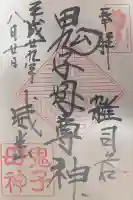 奉拝
雑司ヶ谷
鬼子母尊神
威光山
平成廿九年
八月廿日
鬼子
母神